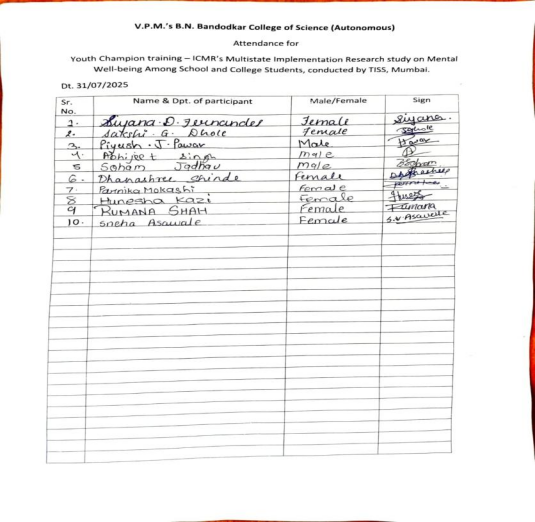 V.P.M.'s B.N. Bandodkar College of Science (Autonomous)
Attendance for
Youth Champion training – ICMR's Multistate Implementation Research study on Mental
Well-being Among School and College Students, conducted by TISS, Mumbai.
Dt. 31/07/2025
Sr. No. Name & Dpt. of participant Male/Female Sign
1. Siyana D. Fernandes Female Siyana.
2. Sakshi G. Dhole Female
3. Piyush . J. Pawar Male
4. Abhijeet Singh Male
5 Soham Jadhav Male
6. Dhanashree Shinde Female
7. Parnika Mokashi Female
8 Hunesha Kazi Female
9 RUMANA SHAH Female Rumana
10. Sneha Asawale Female S.V Asawale